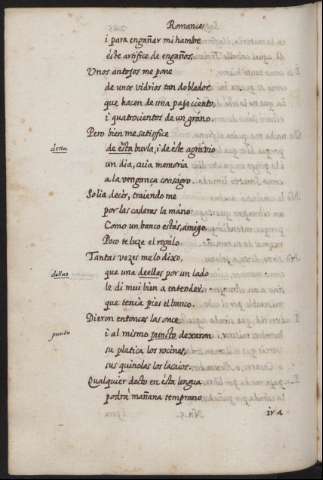 Romances
i para engañar mi hambre
este artifice de engaños.
Unos antojos me pone
de unos vidrios tan doblados
que hacen de una paja ciento,
i quatrocientos de un grano.
Pero bien me satisfice
desta
de esta burla, i de este agravio
un dia, cuia memoria
a la vengança consagro.
Solia decir, traiendo me
por las caderas la mano:
Como un banco estás, amigo.
Poco te luze el regalo.
Tantas vezes me lo dixo,
dellas
que una de ellas por un lado
le di mui bien a entender,
que tenia pies el banco.
Dieron entonces las once
puncto
i al mismo puncto dexaron
su platica los rocines,
sus quinolas los lacaios.
Qualquier docto en esta lengua
podrá mañana temprano
ir a